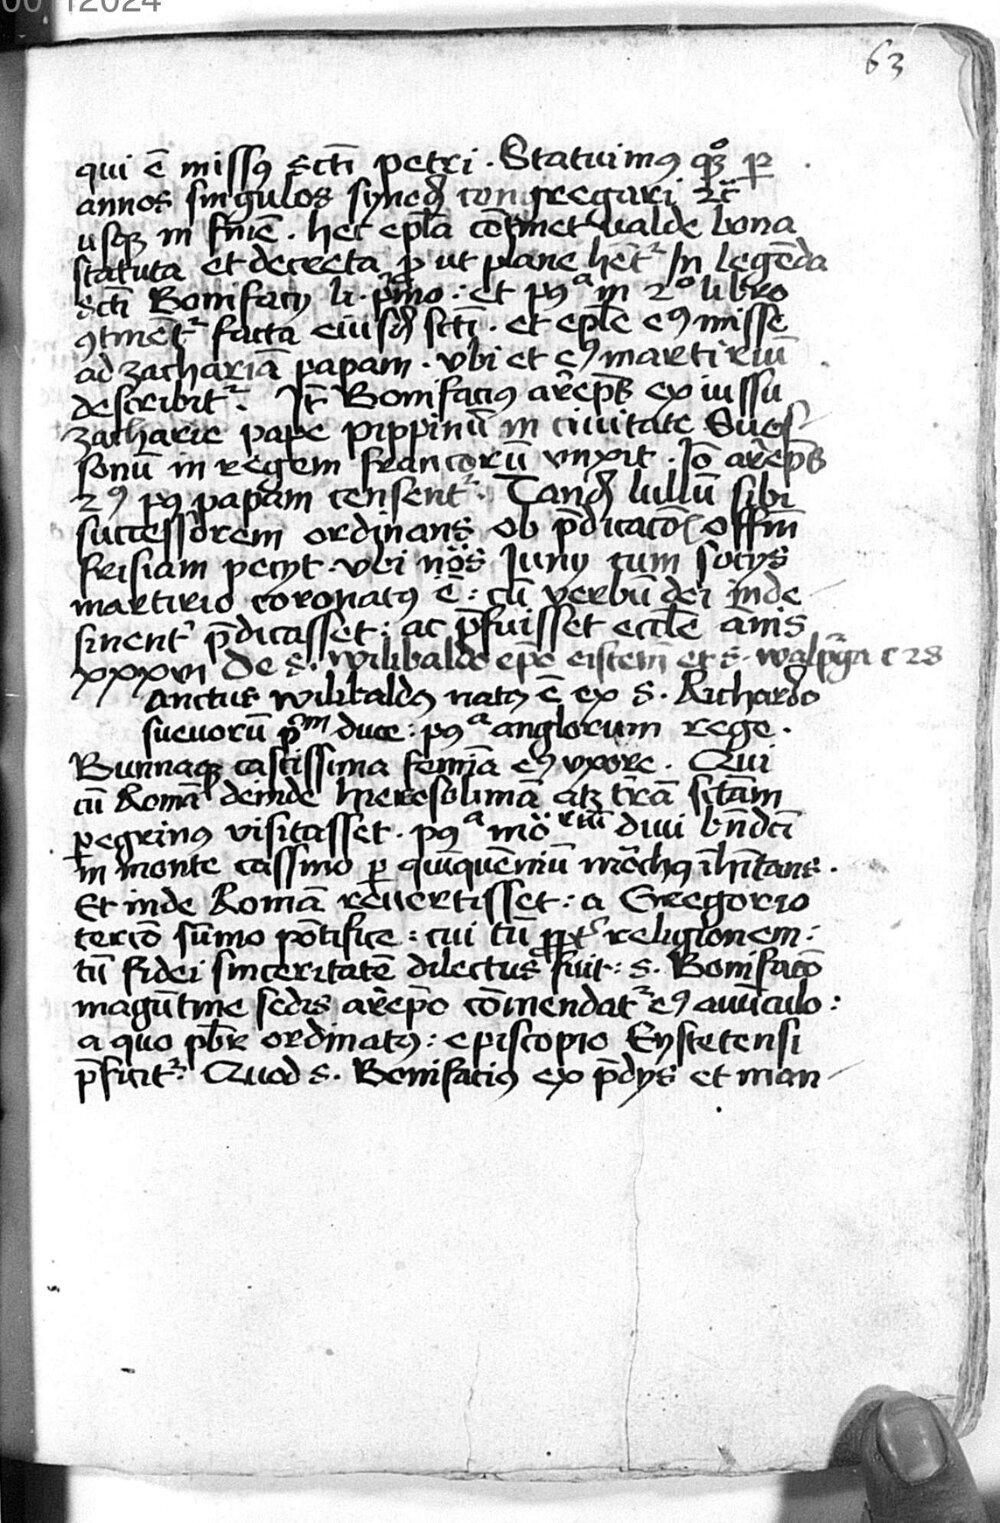 00 12024
63
qui ē missꝰ sctī petri . Statuimꝰ qꝫ° ꝑ
annos singulos synodꝫ congregari ⁊c̄
usqꝫ in finē . hec epl̄a cōtinet valde bona
statuta et decreta ꝓ ut plane hēt² In legēda
sctī Bonifacij li. pͥmo : et pꝰᵃ in 2° libro
ꝯtinēt² facta eiusdꝫ sctī . et epl̄e eꝰ misse
ad zachariā papam . vbi et eꝰ martiriū
describit² . It̄ Bonifaciꝰ arēp̄s ex iussu
zacharie pape pippinū in ciuitate Sues
sonū in regem francorū vnxit . Iō arēp̄s
2ꝰ pꝰ papam censent² . Tandꝫ lullū sibi
successorem ordinans ob p̄dicacōꝫ offm̄
frisiam pecijt . vbi nōs Iunij cum socijs
martirio coronatꝰ ē : cū verbū dei inde
sinent² p̄dicasset : ac p̄fuisset eccl̄e ānis
xxxvi De s. wilibaldo ep̄o eistetn̄ et s. walpᵃga c 28
anctus wilibaldꝰ natꝰ ē ex s. Richardo
sueuorū pͥm̄ duce : pꝰᵃ anglorum rege .
Bunnaqꝫ castissima femīa eꝰ vxore . Qui
cū Romā deinde hieresolimā atqꝫ tr̄ā sctām
ꝑegrinꝰ visitasset . pꝰᵃ mōʳⁱᵘ̄ diui bn̄dcī
in monte cassino ꝑ quīquēniū mōchꝰ īhītans .
Et inde Romā reuertisset : a Gregorio
tercio sūmo pōtifice : cui tū ꝓpt² religionem :
tū fidei sinceritatē dilectus fuit : s. Bonifacō
magūtine sedis arēp̄o cōmendat² eꝰ auūculo :
a quo pb̄r ordinatꝰ : episcopio Eystetensi
p̄ficit² . Quod s. Bonifaciꝰ ex p̄dijs et man